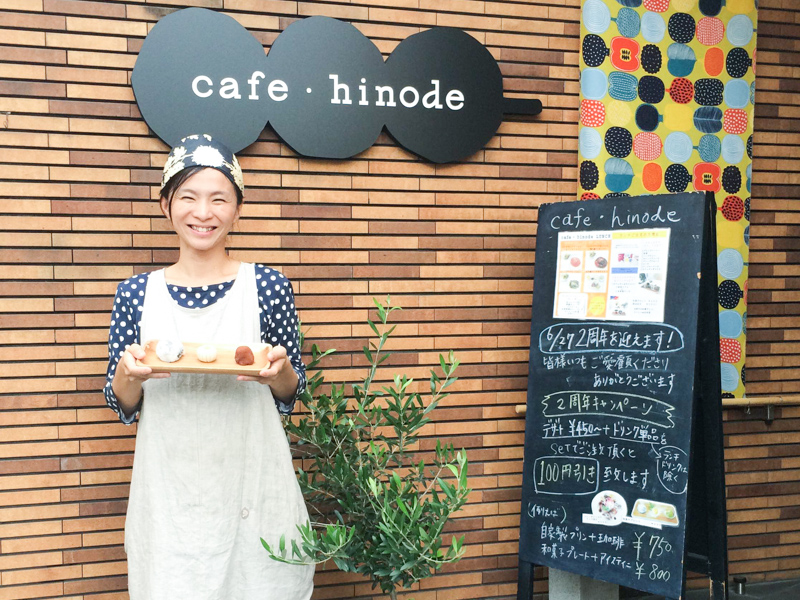 cafe・hinode
cafe・hinode
6/27 2周年を迎えます!
皆様いつもご愛顧くださり
ありがとうございます
2周年キャンペーン
デザート ¥450~+ドリンク単品を
setでご注文頂くと
100円引き 致します
ランチ
ドリンクは
除く
(例えば)
自家製プリン+珈琲 ¥750
和菓子プレート+アイスティー ¥800